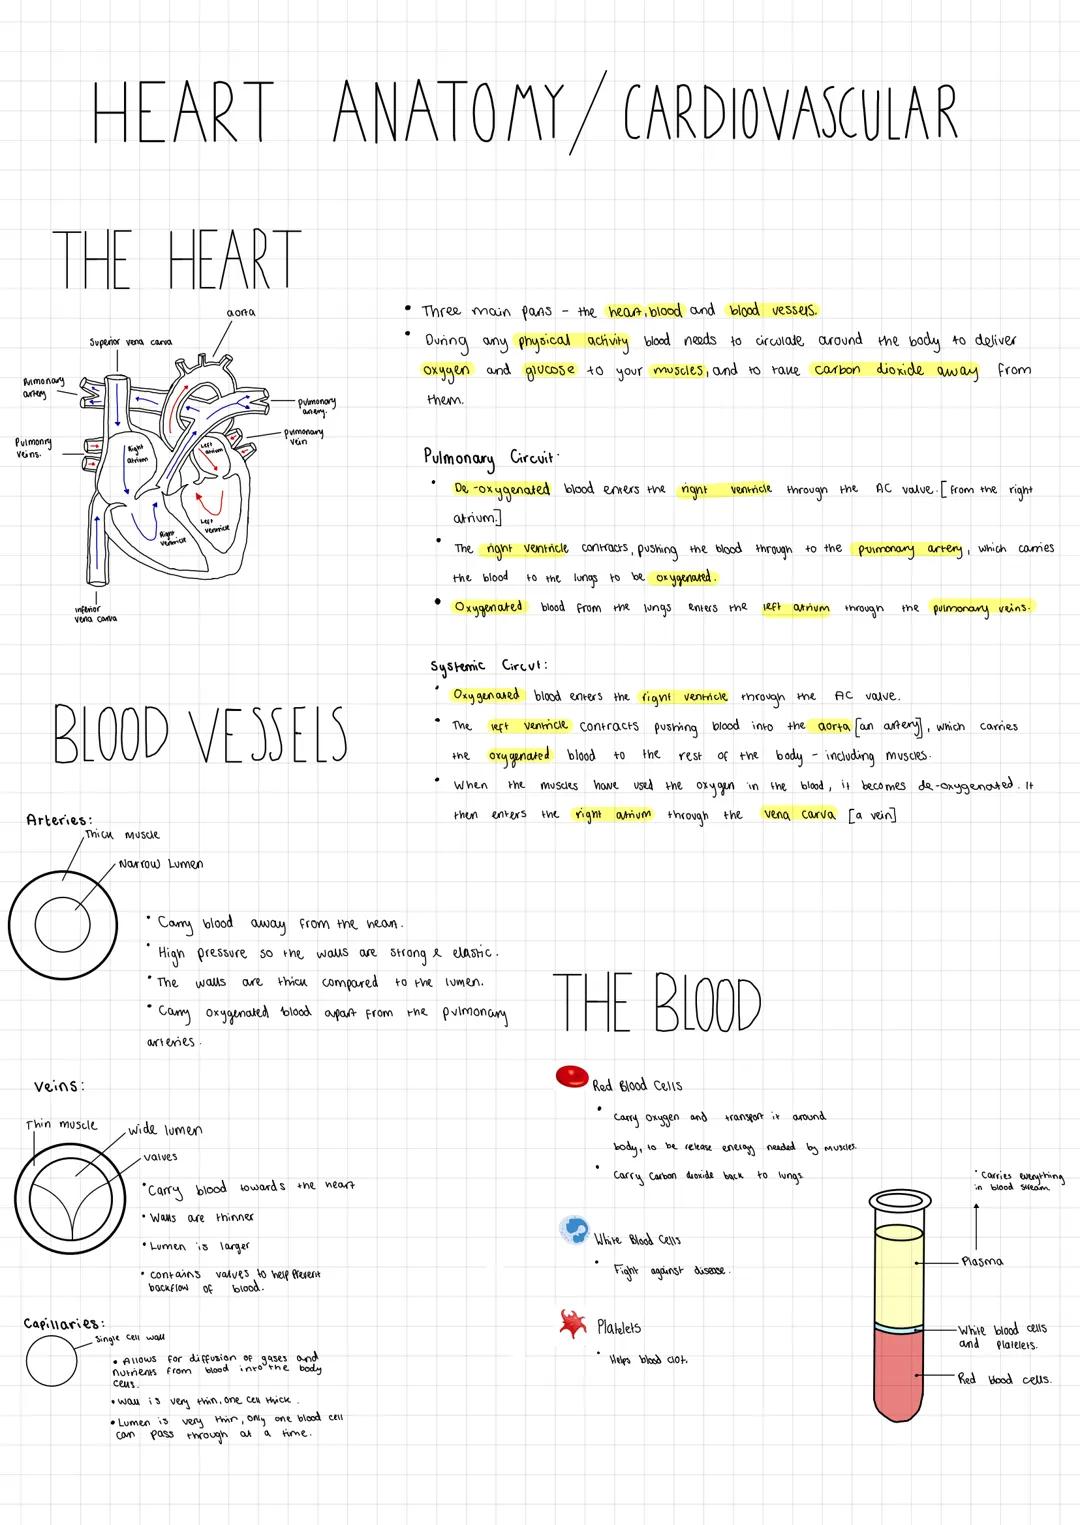 HEART ANATOMY/CARDIOVASCULAR
THE HEART
aorta
Superior vena carva
Pulmonary
artery
Pulmonry
veins.
pulmonary
artery.
pulmonary
vein
Right
atrium
Left
atrium
Left
ventricle
Right
ventricle
inferior
vena carva
• Three main pans – the heart, blood and blood vessels.
• During any physical activity blood needs to circulate around the body to deliver
oxygen and glucose to your muscles, and to take carbon dioxide away from
them.
Pulmonary Circuit:
• De-oxygenated blood enters the right ventricle through the AC valve. [from the right
atrium.]
• The right ventricle contracts, pushing the blood through to the pulmonary artery, which carries
the blood to the lungs to be oxygenated.
• Oxygenated blood from the lungs enters the left atrium through the pulmonary veins.
Systemic Circut:
• Oxygenated blood enters the right ventricle through the AC valve.
• The left ventricle contracts pushing blood into the aorta [an artery], which carries
the oxygenated blood to the rest of the body - including muscles.
• When the muscles have used the oxygen in the blood, it becomes de-oxygenated. It
then enters the right atrium through the vena carva [a vein]
BLOOD VESSELS
Arteries:
Thick muscle
Narrow Lumen
• Carry blood away from the heart.
• High pressure so the walls are strong & elastic.
• The walls are thick compared to the lumen.
• Carry oxygenated blood apart from the pulmonary
arteries.
Veins:
Thin muscle
wide lumen
valves
• Carry blood towards the heart
• Walls are thinner
• Lumen is larger
• contains valves to help prevent
backflow of blood.
Capillaries:
Single cell wall
• Allows for diffusion of gases and
nutrients from blood into the body
cells.
• Wall is very thin, one cell thick.
• Lumen is very thin, only one blood cell
can pass through at a time.
THE BLOOD
Red Blood Cells
• Carry oxygen and transport it around
body, to be release energy needed by muscles.
• Carry Carbon dioxide back to lungs
White Blood Cells
• Fight against disease.
Platelets
• Helps blood clot.
• Carries everything
in blood stream
Plasma
White blood cells
and platelets.
Red blood cells.